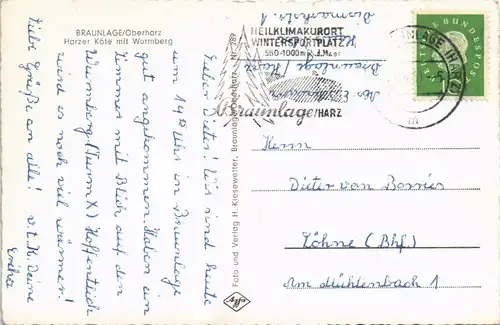 BRAUNLAGE/Oberharz
Harzer Köte mit Wurmberg
Lieber Dieter! Wir sind heute
um 14 00 Uhr in Braunlage
gut angekommen. Haben ein
Zimmer mit Blick auf den
Wurmberg (Turm X) Hoffentlich
wird es noch viel wärmer!
Liebe Grüße an alle! v. l. K. Deine
Erika
Foto und Verlag H. Kiesewetter, Braunlage/Oberharz Nr. 789
Agfa
HEILKLIMAKURORT
WINTERSPORTPLATZ
560-1000 m ü.d.Meer
Braunlage/HARZ
Braunlage / Harz
DEUTSCHE BUNDESPOST
Herrn
Dieter von Borries
Löhne (Bhf.)
Am Mühlenbach 1